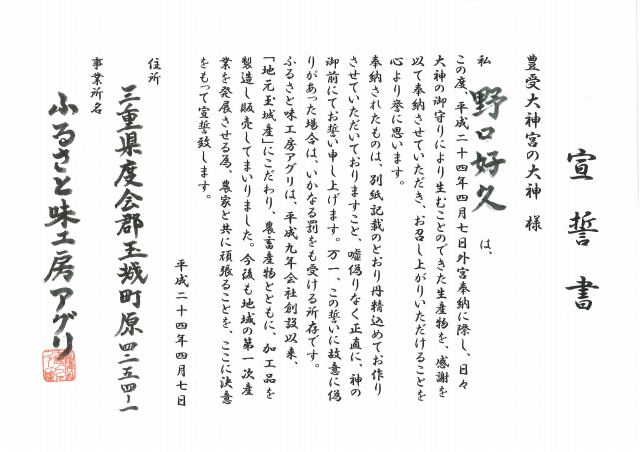 宣誓書
豊受大神宮の大神 様
私 野口好久 は、
この度、平成二十四年四月七日外宮奉納に際し、日々
大神の御守りにより生むことのできた生産物を、感謝を
以て奉納させていただき、お召し上がりいただけることを
心より誉に思います。
奉納されたものは、別紙記載のとおり丹精込めてお作り
させていただいておりますこと、嘘偽りなく正直に、神の
御前にてお誓い申し上げます。万一、この誓いに故意に偽
りがあった場合は、いかなる罰をも受ける所存です。
ふるさと味工房アグリは、平成九年会社創設以来、
「地元玉城産」にこだわり、農畜産物とともに、加工品を
製造し販売してまいりました。今後も地域の第一次産
業を発展させる為、農家と共に頑張ることを、ここに決意
をもって宣誓致します。
平成二十四年四月七日
住所
三重県度会郡玉城町原四二五四-一
事業所名
ふるさと味工房アグリ